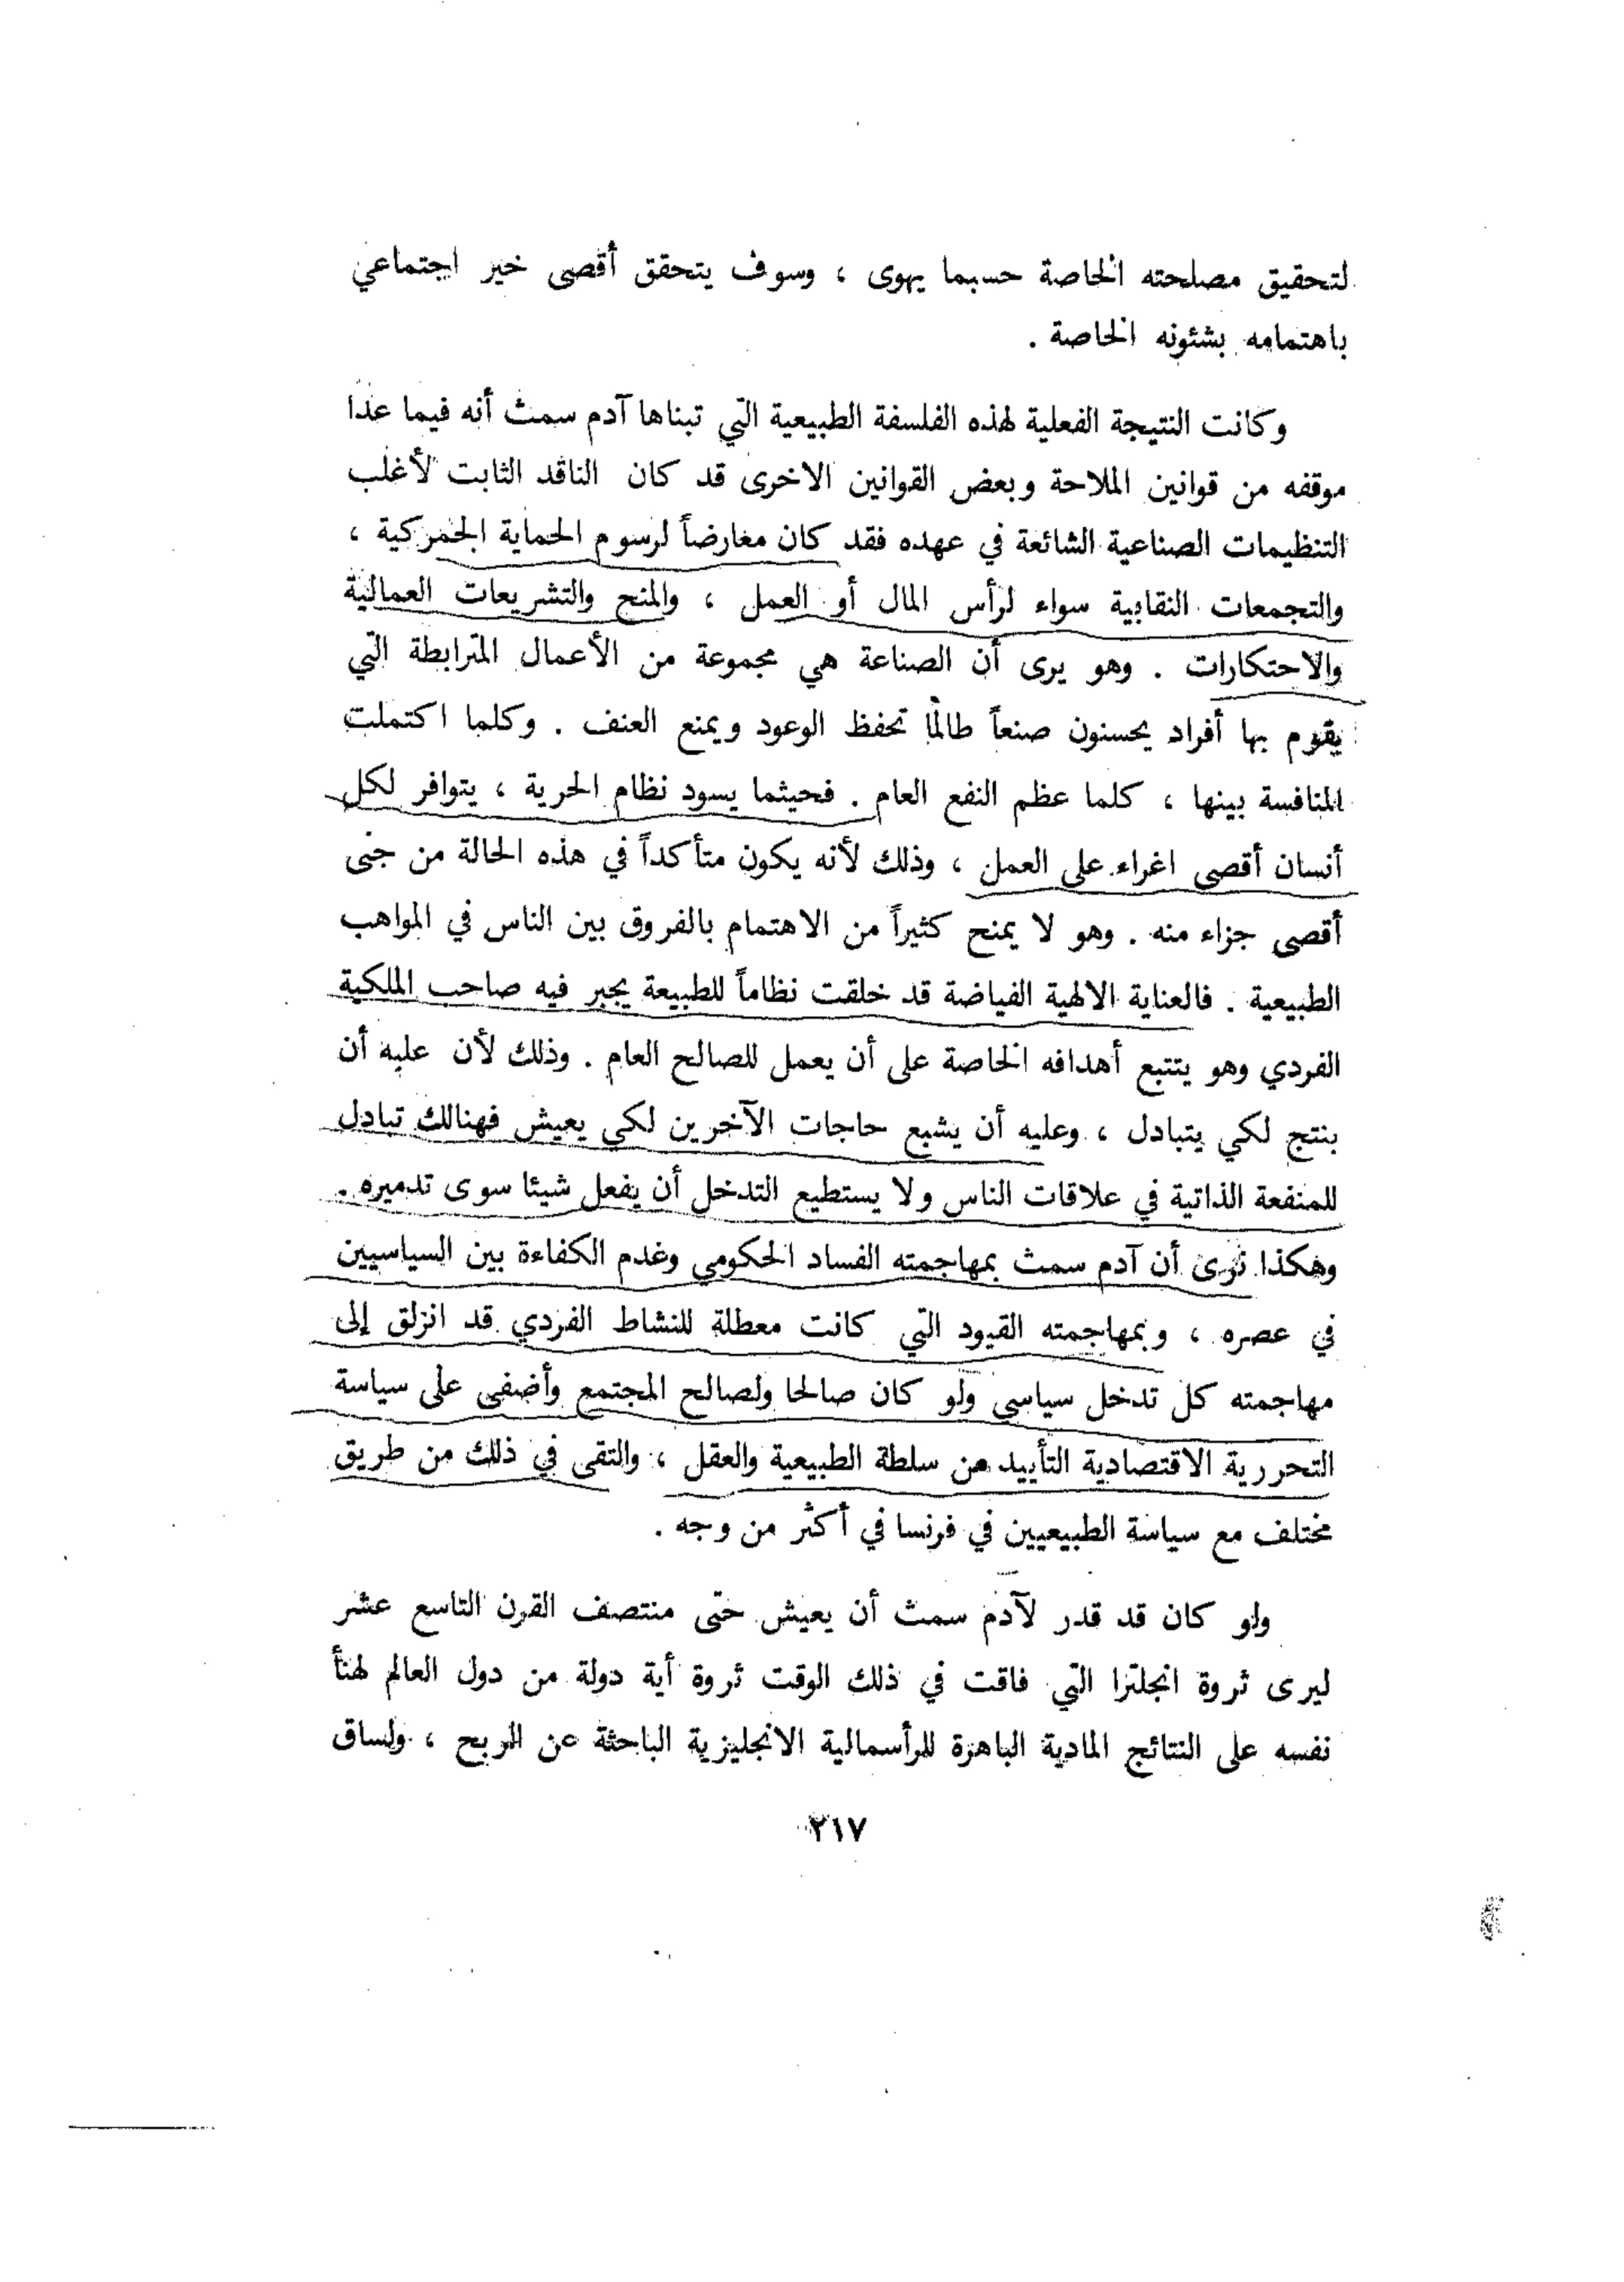 لتحقيق مصلحته الخاصة حسبما يهوى ، وسوف يتحقق أقصى خير اجتماعي
باهتمامه بشئونه الخاصة .
وكانت النتيجة الفعلية لهذه الفلسفة الطبيعية التي تبناها آدم سمث أنه فيما عدا
موقفه من قوانين الملاحة وبعض القوانين الاخرى قد كان الناقد الثابت لأغلب
التنظيمات الصناعية الشائعة في عهده فقد كان معارضاً لرسوم الحماية الجمركية ،
والتجمعات النقابية سواء لرأس المال أو العمل ، والمنح والتشريعات العمالية
والاحتكارات . وهو يرى أن الصناعة هي مجموعة من الأعمال المترابطة التي
يقوم بها أفراد يحسنون صنعاً طالما تحفظ الوعود ويمنع العنف . وكلما اكتملت
المنافسة بينها ، كلما عظم النفع العام . فحيثما يسود نظام الحرية ، يتوافر لكل
أنسان أقصى اغراء على العمل ، وذلك لأنه يكون متأكداً في هذه الحالة من جنى
أقصى جزاء منه . وهو لا يمنح كثيراً من الاهتمام بالفروق بين الناس في المواهب
الطبيعية . فالعناية الالهية الفياضة قد خلقت نظاماً للطبيعة يجبر فيه صاحب الملكية
الفردي وهو يتتبع أهدافه الخاصة على أن يعمل للصالح العام . وذلك لأن عليه أن
ينتج لكي يتبادل ، وعليه أن يشبع حاجات الآخرين لكي يعيش فهنالك تبادل
للمنفعة الذاتية في علاقات الناس ولا يستطيع التدخل أن يفعل شيئا سوى تدميره .
وهكذا نرى أن آدم سمث بمهاجمته الفساد الحكومي وعدم الكفاءة بين السياسيين
في عصره ، وبمهاجمته القيود التي كانت معطلة للنشاط الفردي قد انزلق إلى
مهاجمته كل تدخل سياسي ولو كان صالحا ولصالح المجتمع وأضفى على سياسة
التحررية الاقتصادية التأييد من سلطة الطبيعية والعقل ، والتقى في ذلك من طريق
مختلف مع سياسة الطبيعيين في فرنسا في أكثر من وجه .
ولو كان قد قدر لآدم سمث أن يعيش حتى منتصف القرن التاسع عشر
ليرى ثروة انجلترا التي فاقت في ذلك الوقت ثروة أية دولة من دول العالم لهنأ
نفسه على النتائج المادية الباهرة للرأسمالية الانجليزية الباحثة عن الربح ، ولساق
٢١٧